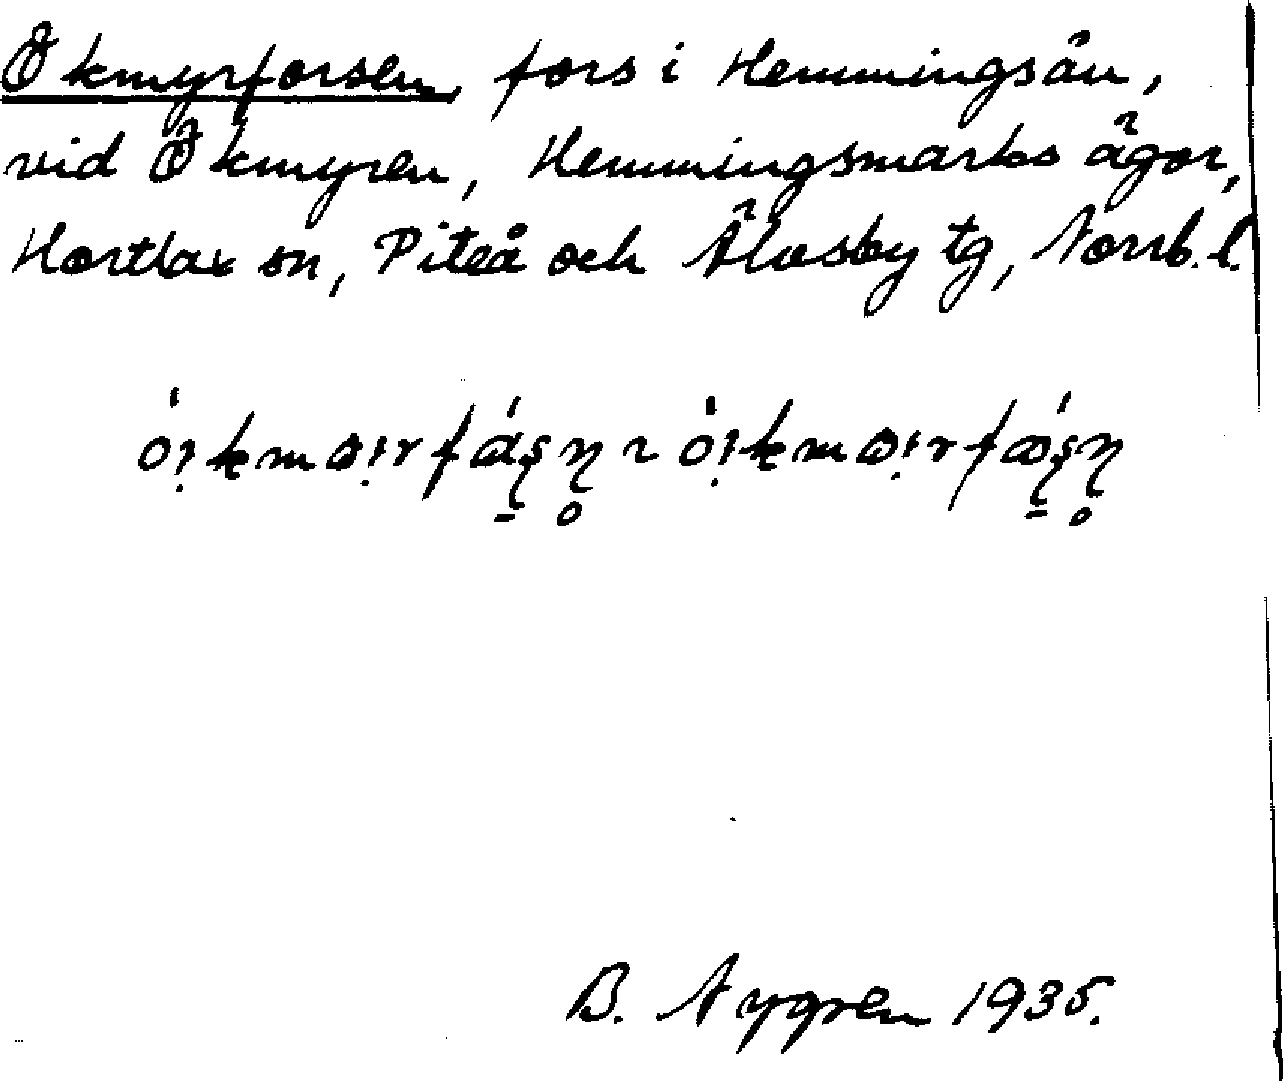 Ökmyrforsen, fors i Hemmingsån,
vid Ökmyren, Hemmingsmarks ägor,
Hortlax sn, Piteå och Älvsby tg, Norrb. l.
B. Nygren 1935.